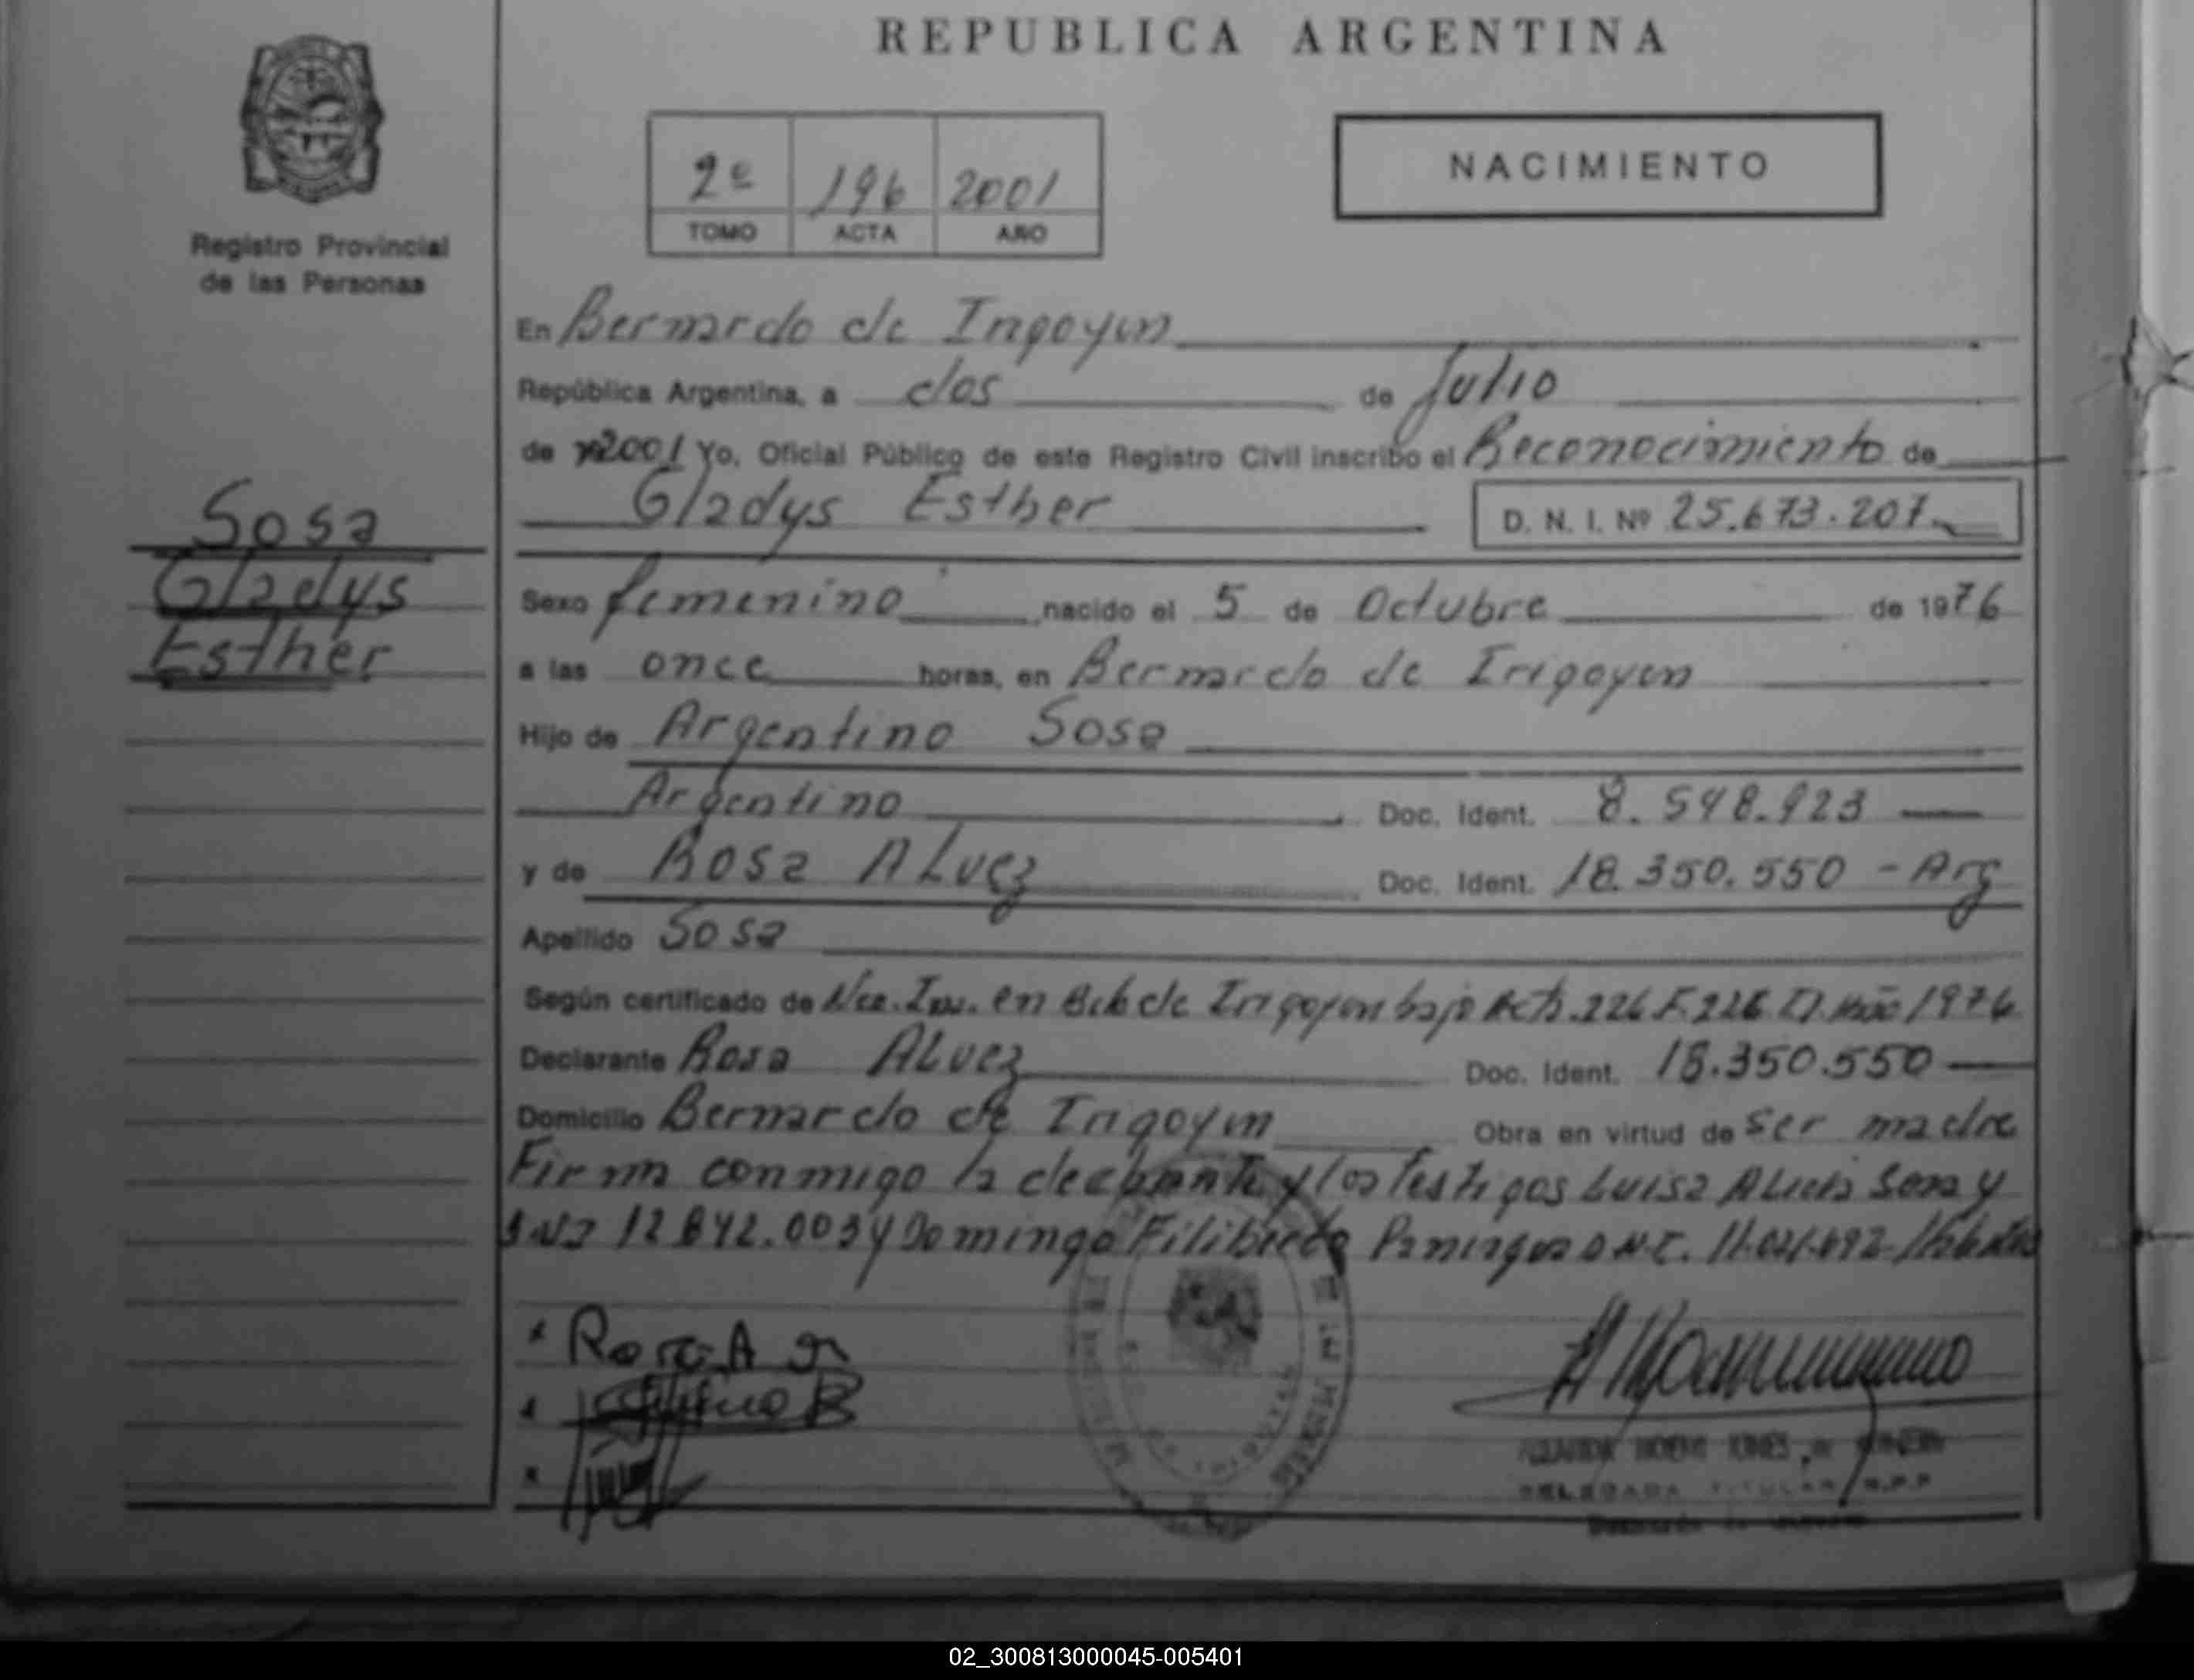 REPUBLICA ARGENTINA
2º 196 2001
TOMO ACTA AÑO
NACIMIENTO
Registro Provincial
de las Personas
Sosa
Gladys
Esther
En Bernardo de Irigoyen
República Argentina, a dos de Julio
de 2001 Yo, Oficial Público de este Registro Civil inscribo el Reconocimiento de
Gladys Esther D. N. I. Nº 25.673.207
Sexo femenino, nacido el 5 de Octubre de 1976
a las once horas, en Bernardo de Irigoyen
Hijo de Argentino Sosa
Argentino Doc. Ident. 8.548.923
y de Rosa Alvez Doc. Ident. 18.350.550 - Arg
Apellido Sosa
Según certificado de en de Irigoyen bajo Acta 226 F. 226 Año 1976
Declarante Rosa Alvez Doc. Ident. 18.350.550
Domicilio Bernardo de Irigoyen Obra en virtud de ser madre
Firma conmigo la declarante y los testigos Luisa Sosa y
12.842.003 y Domingo
Rosa A
DELEGADA TITULAR R.P.P
02_300813000045-005401